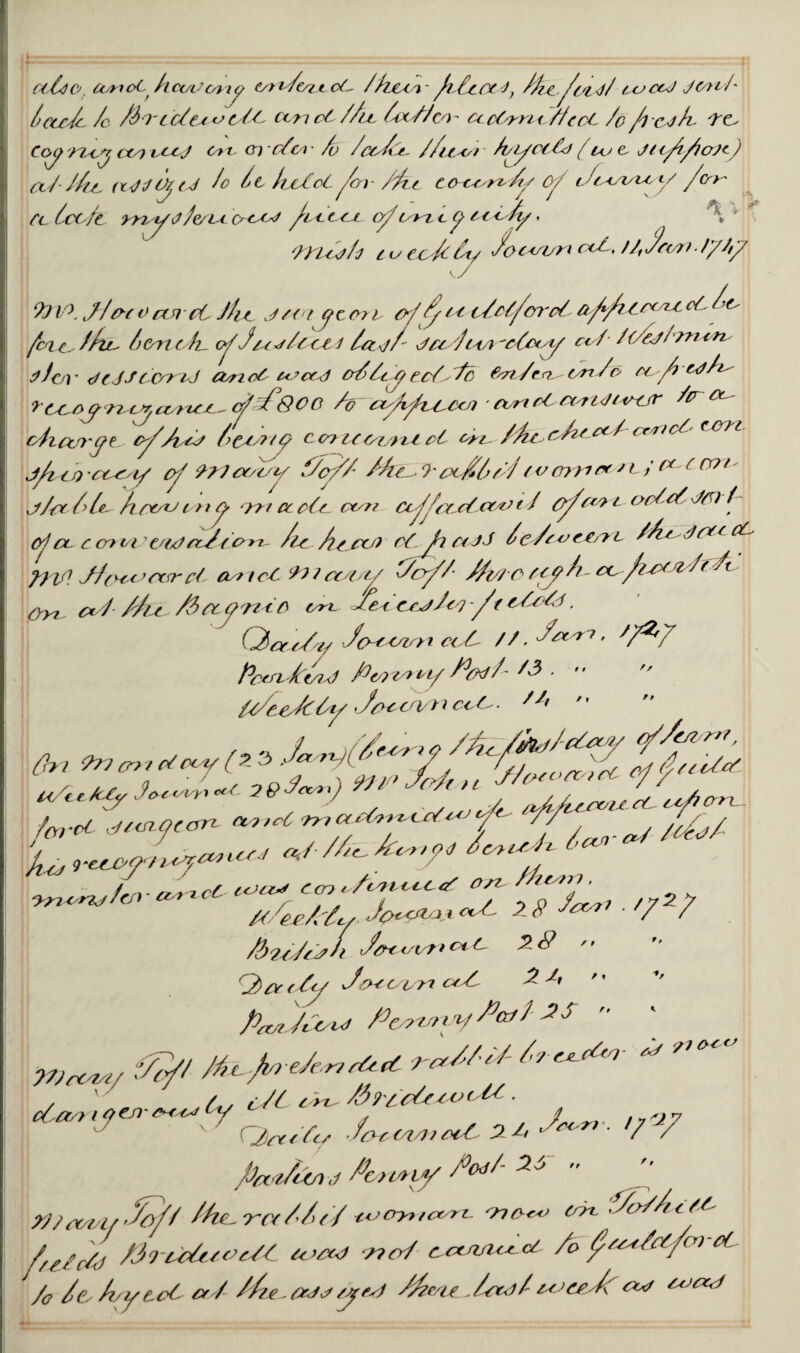 also, and having entered their pleas, the last was sent
back to Bridewell and the latter admitted to fresh re
cognizances in order to take their tryals (we suppose)
at the assizes to be held for the county of Surrey for
a late mysterious piece of iniquity.
Mists weekly Journal, 14, Jan. 1727
Mr. Howard the surgeon of Guildford appeared be
fore the bench of Justices last Saturday at Westmin
ster sessions and was obliged to enter into a fresh
recognizance of £800 to appear and answer to a
charge of his being concerned in the cheat and con
spiracy of Mary Toft the rabbit woman; a con
stable having made an affadavit of an odd sort
of a conversation he heard pass between the said
Mr Howard and Mary Toft through a partition
on at the Bagnio in Leicester-fields.
Daily Journal 11. Jan. 1727
Parkers Penny Post 13. " "
Weekly Journal. 14 " "
On Monday (23 Jany) (being the first day of term,
Weekly Journal 28 Jan) Mr John Howard of Guild
ford surgeon and madmidwife appeared upon
his recognizances at the kings bench bar at West
minster and was continued on them.
Weekly Journal 28 Jan. 1727
British Journal 28 " "
Daily Journal 24 " "
Parkers Penny Post 25 " "
Mary Toft the pretended rabbit breeder is now
dangerously ill in Bridewell.
Daily Journal 24 Jan. 1727
Parkers Penny Post 25 " "
Mary Toft the rabbit woman now in Tothill
fields Bridewell was not carried to Guildford
to be tryed at the assizes there last week as was